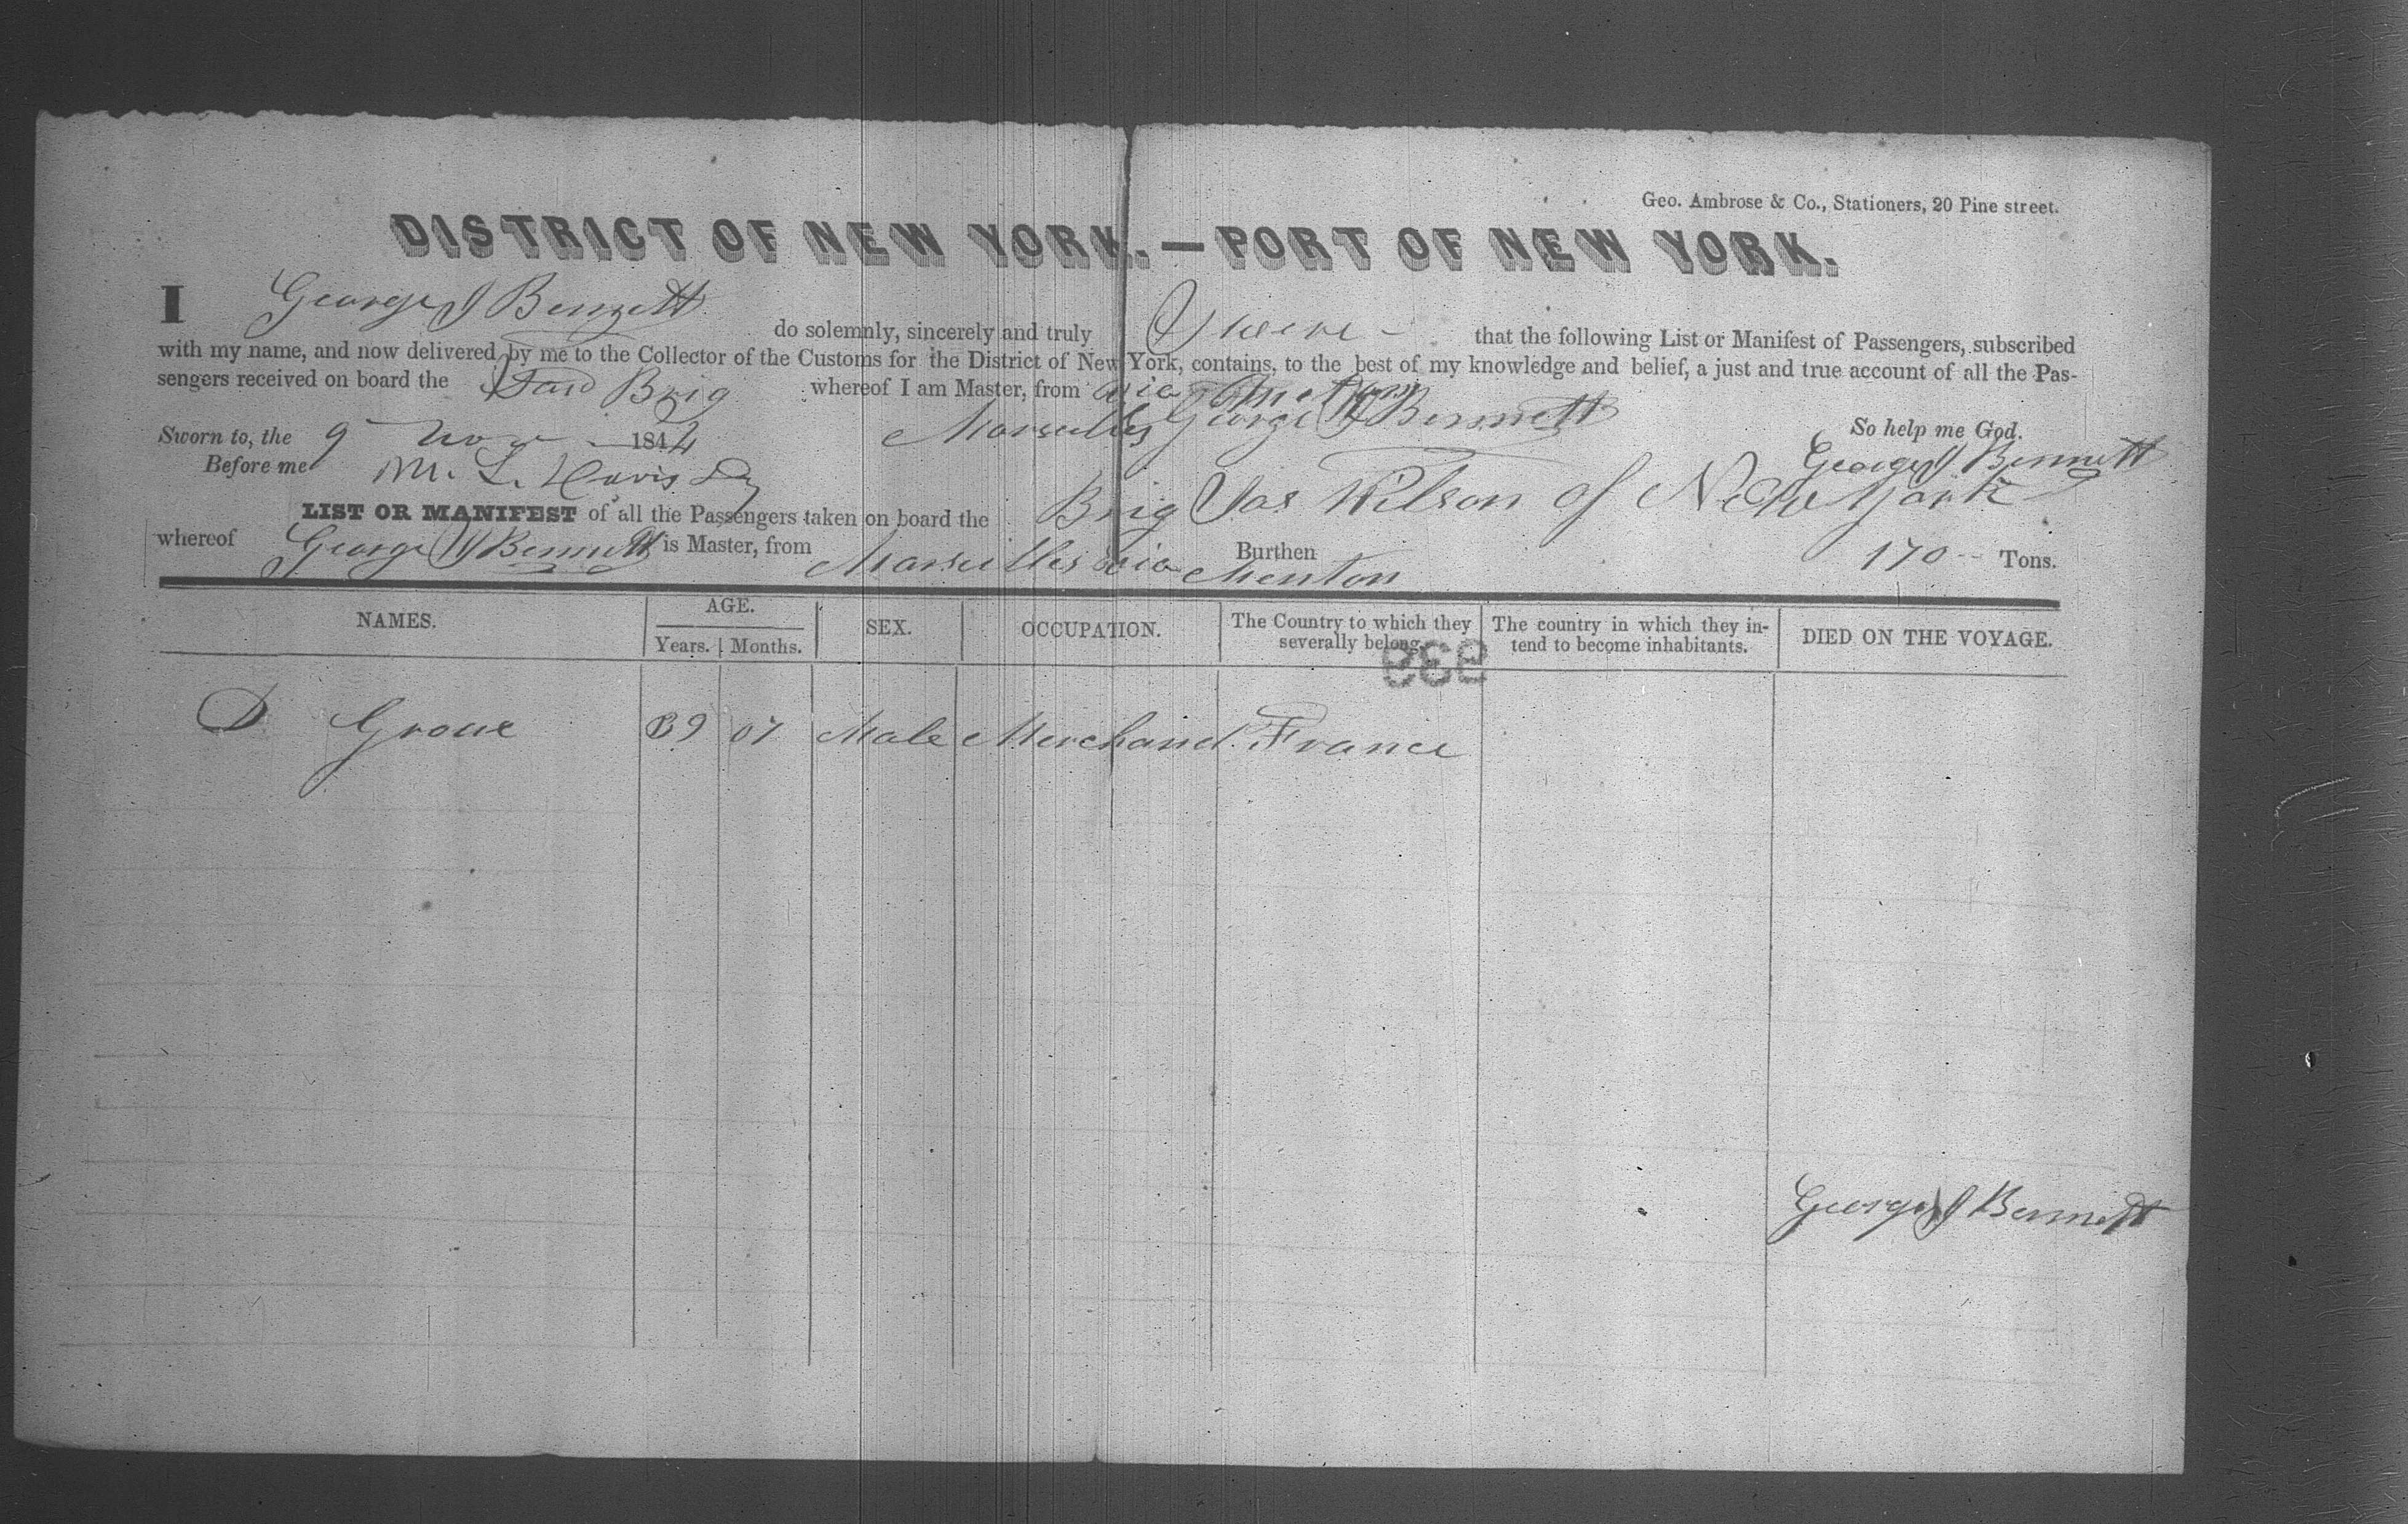 Geo. Ambrose & Co., Stationers, 20 Pine street.
DISTRICT OF NEW YORK.—PORT OF NEW YORK.
I George J Bennett do solemnly, sincerely and truly Swear - that the following List or Manifest of Passengers, subscribed
with my name, and now delivered by me to the Collector of the Customs for the District of New York, contains, to the best of my knowledge and belief, a just and true account of all the Pas-
sengers received on board the Said Brig whereof I am Master, from Marseilles via Menton
George J Bennett
So help me God.
Sworn to, the 9 Nov 1844
George J Bennett
Before me M. L. Davis
LIST OR MANIFEST of all the Passengers taken on board the Brig Jas Wilson of New York
whereof George J Bennett is Master, from Marseilles via Menton Burthen 170 -- Tons.
NAMES. AGE. SEX. OCCUPATION. The Country to which they severally belong. The country in which they in- DIED ON THE VOYAGE.
Years. Months. tend to become inhabitants.
939
D Groue 39 07 Male Merchand France
George J Bennett